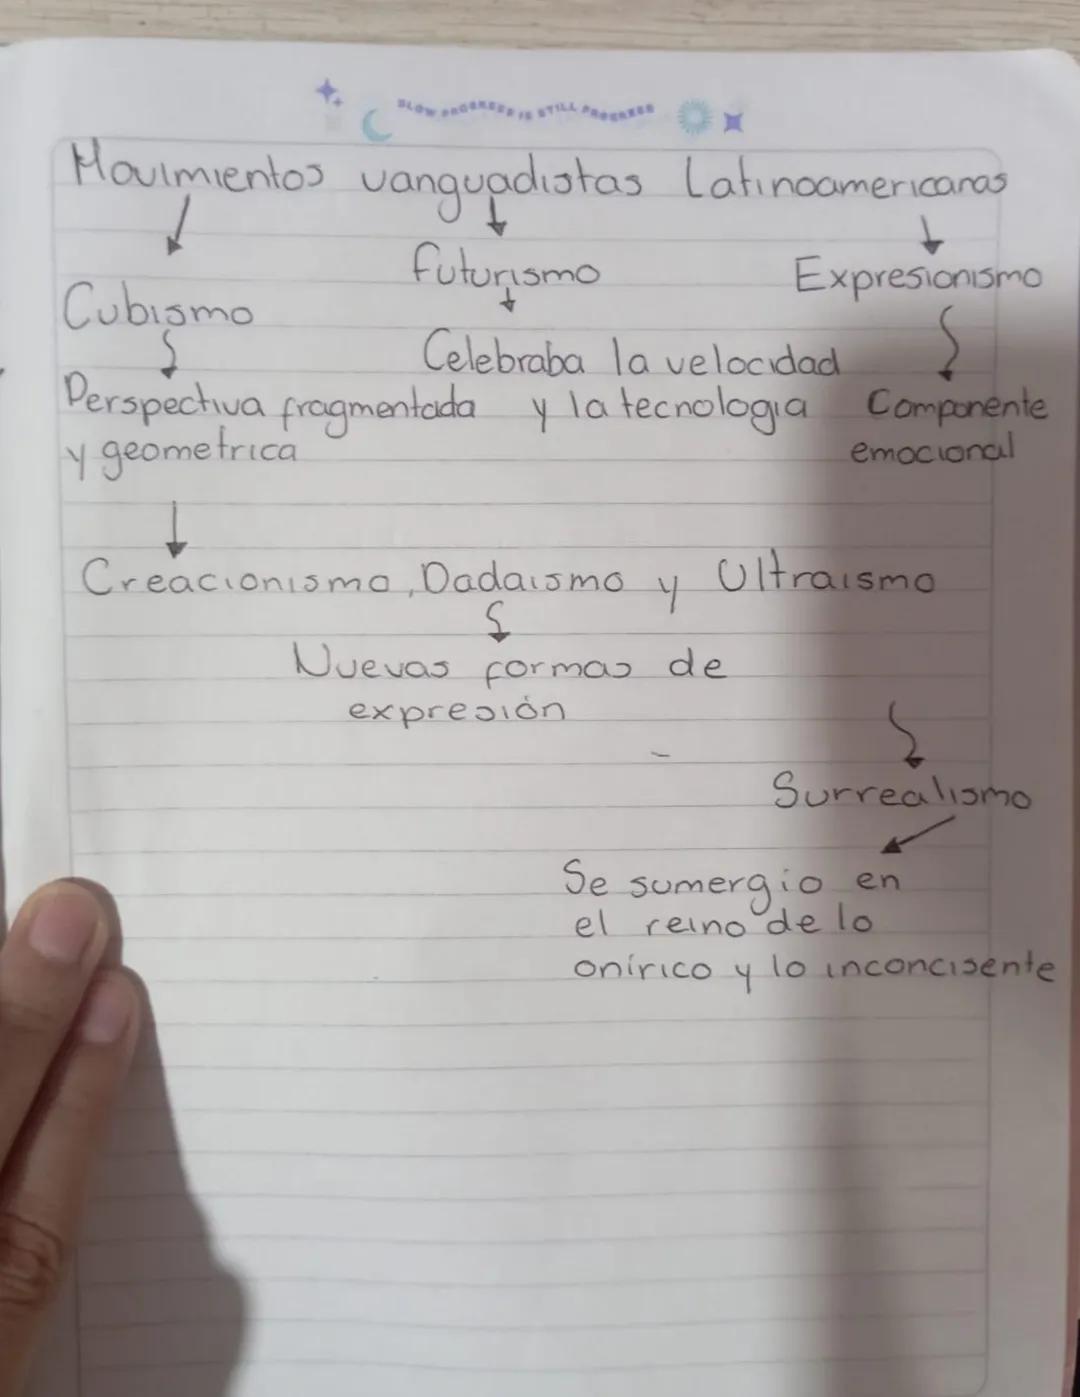 SLOW PROGRESS IS STILL PROGRESS
Movimientos vanguadistas Latinoamericanas
Cubismo
futurismo
Expresionismo
Perspectiva fragmentada
y geometrica
Celebraba la velocidad
y la tecnologia
Componente
emocional
Creacionismo, Dadaismo y Ultraismo
Nuevas formas de
expresión
Surrealismo
Se sumergio en
el reino de lo
onírico y lo inconcisente